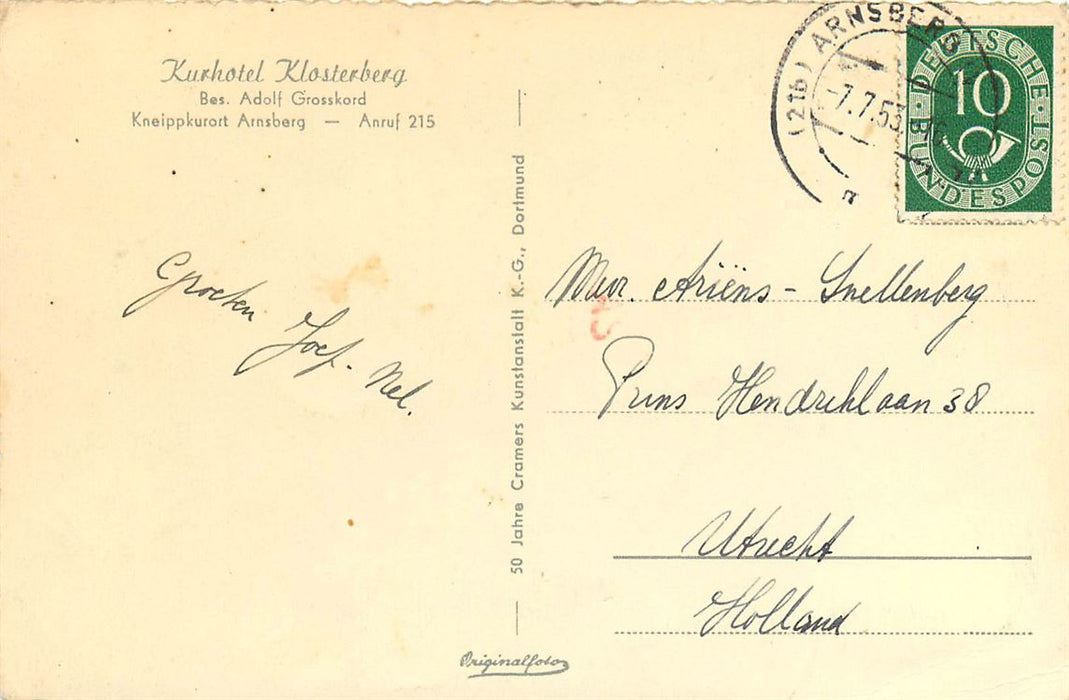 Kurhotel Klosterberg
Bes. Adolf Grosskord
Kneippkurort Arnsberg — Anruf 215
Groeten
Joef. Nel.
50 Jahre Cramers Kunstanstalt K.-G., Dortmund
Originalfoto
(21b) ARNSBERG
-7.7.53
DEUTSCHE
10
BUNDESPOST
Mevr. Ariëns - Snellenberg
Prins Hendriklaan 38
Utrecht
Holland